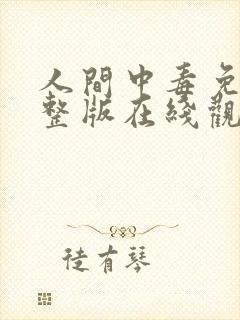 人間中毒免
整版在綫觀
徒有琴